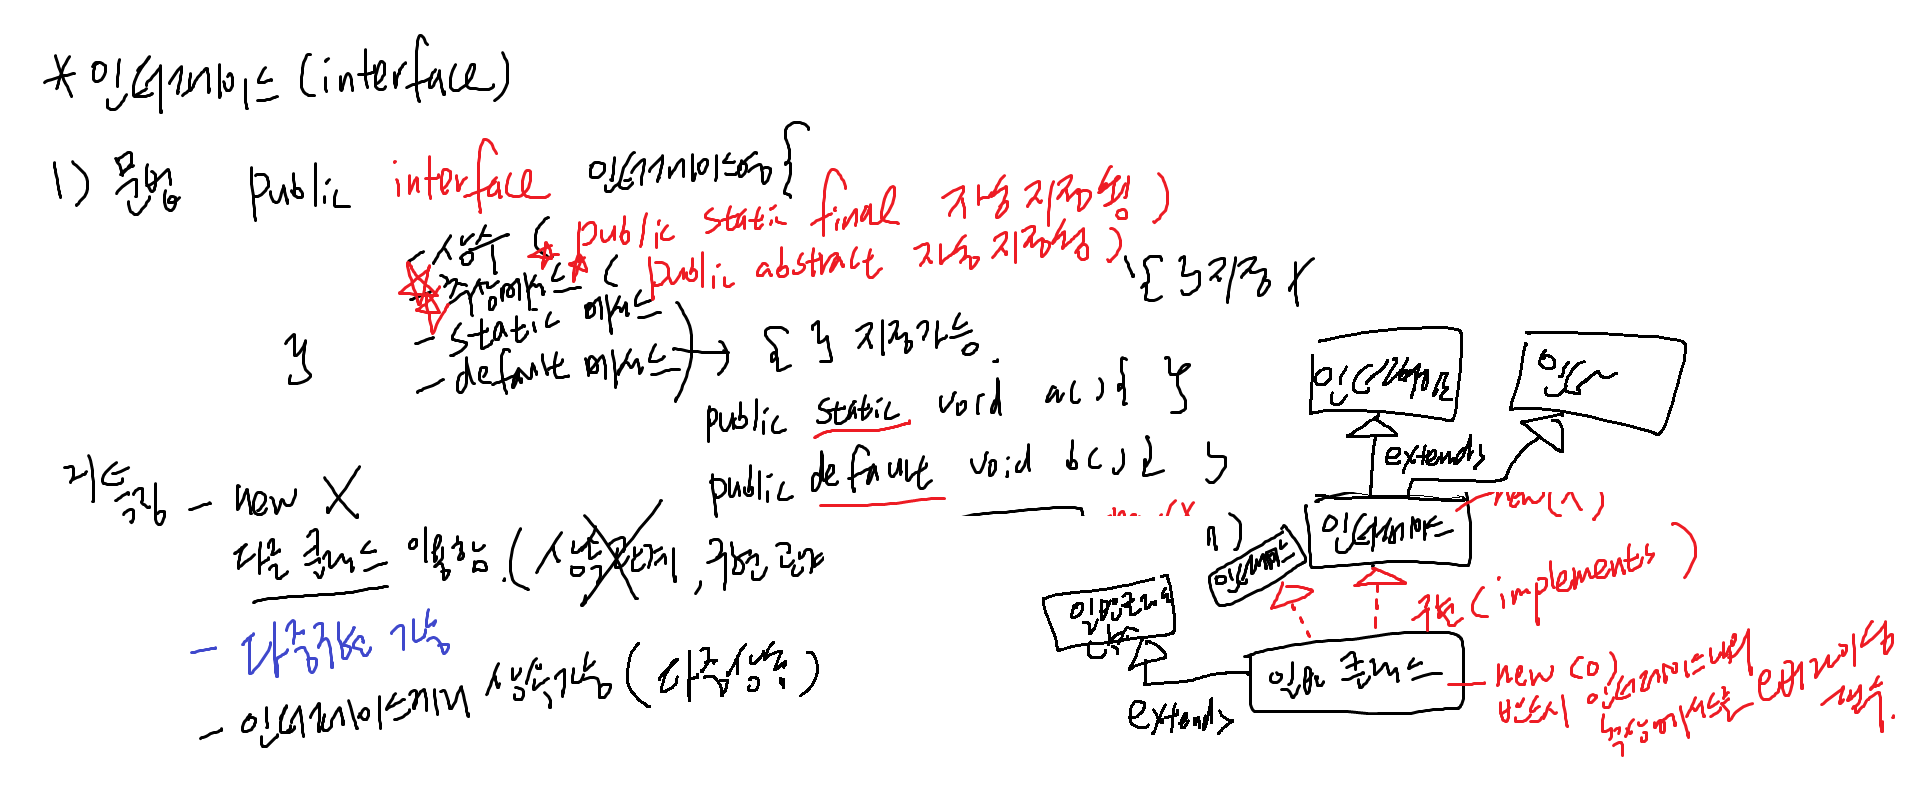 * 인터페이스 (interface)
1) 문법 public interface 인터페이스명 {
- 상수 ( public static final 자동 지정됨 )
- 추상메서드 ( public abstract 자동 지정됨 ) { } 지정 X
- static 메서드
- default 메서드 → { } 지정가능
}
public static void a() { }
public default void b() { }
특징 - new X
다른 클래스 이용함. (상속관계, 구현 관계)
- 다중구현 가능
- 인터페이스끼리 상속가능 (다중상속)
인터페이스
인터~
extends
인터페이스
new(X)
인터페이스
구현 (implements)
일반클래스
일반 클래스
extends
new (O)
반드시 인터페이스내의
추상메서드를 오버라이딩
필수.